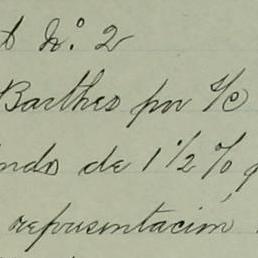 Nº 2
Barthes por %c
de 1 ½ %
representación